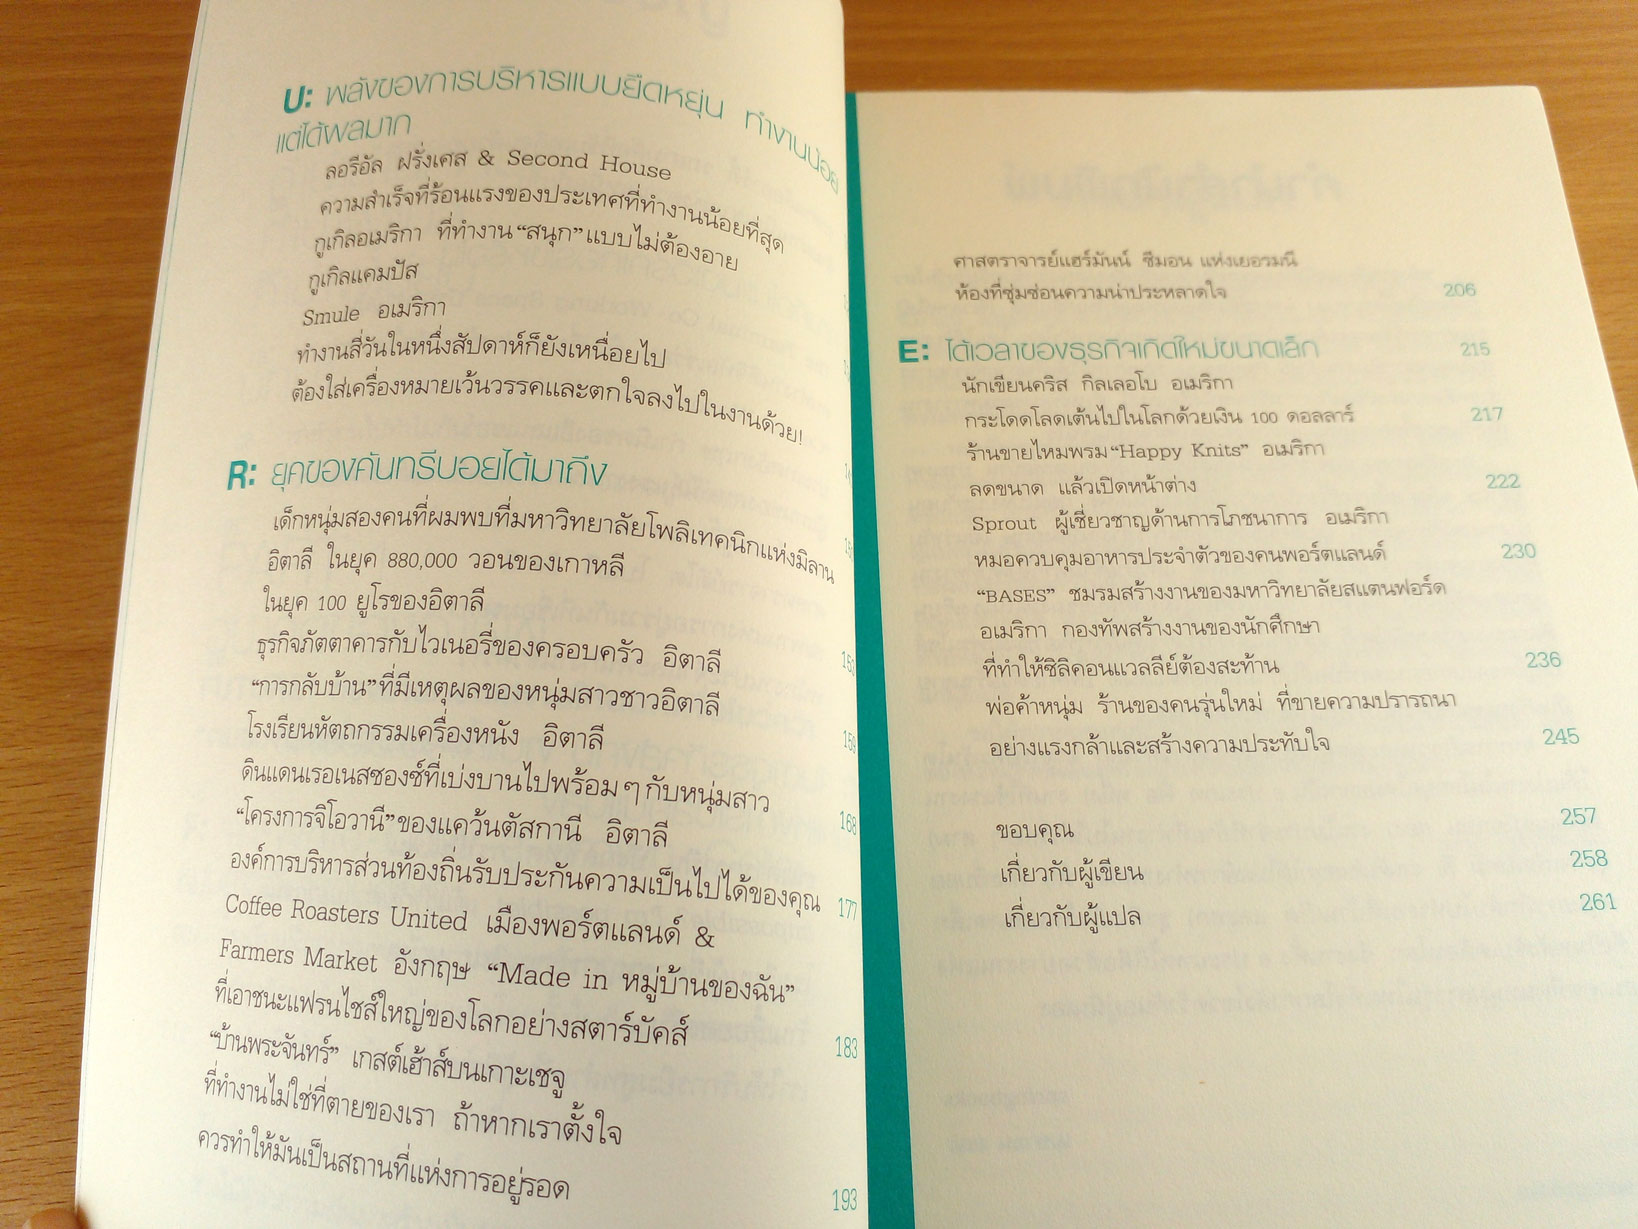 U: พลังของการบริหารแบบยืดหยุ่น ทำงานน้อย
แต่ได้ผลมาก
ลอรีอัล ฝรั่งเศส & Second House
ความสำเร็จที่ร้อนแรงของประเทศที่ทำงานน้อยที่สุด
กูเกิลอเมริกา ที่ทำงาน “สนุก” แบบไม่ต้องอาย
กูเกิลแคมปัส
Smule อเมริกา
ทำงานสี่วันในหนึ่งสัปดาห์ก็ยังเหนื่อยไป
ต้องใส่เครื่องหมายเว้นวรรคและตกใจลงไปในงานด้วย!
R: ยุคของคันทรีบอยได้มาถึง
เด็กหนุ่มสองคนที่ผมพบที่มหาวิทยาลัยโพลิเทคนิกแห่งมิลาน
อิตาลี ในยุค 880,000 วอนของเกาหลี
ในยุค 100 ยูโรของอิตาลี
ธุรกิจภัตตาคารกับไวเนอรี่ของครอบครัว อิตาลี
“การกลับบ้าน” ที่มีเหตุผลของหนุ่มสาวชาวอิตาลี
โรงเรียนหัตถกรรมเครื่องหนัง อิตาลี 159
ดินแดนเรอเนสซองซ์ที่เบ่งบานไปพร้อมๆ กับหนุ่มสาว 168
“โครงการจิโอวานี” ของแคว้นตัสกานี อิตาลี
องค์การบริหารส่วนท้องถิ่นรับประกันความเป็นไปได้ของคุณ 177
Coffee Roasters United เมืองพอร์ตแลนด์ &
Farmers Market อังกฤษ “Made in หมู่บ้านของฉัน”
ที่เอาชนะแฟรนไชส์ใหญ่ของโลกอย่างสตาร์บัคส์ 183
“บ้านพระจันทร์” เกสต์เฮ้าส์บนเกาะเชจู
ที่ทำงานไม่ใช่ที่ตายของเรา ถ้าหากเราตั้งใจ
ควรทำให้มันเป็นสถานที่แห่งการอยู่รอด 193
ศาสตราจารย์แฮร์มันน์ ซีมอน แห่งเยอรมนี
ห้องที่ซุ่มซ่อนความน่าประหลาดใจ 206
E: ได้เวลาของธุรกิจเกิดใหม่ขนาดเล็ก 215
นักเขียนคริส กิลเลอโบ อเมริกา
กระโดดโลดเต้นไปในโลกด้วยเงิน 100 ดอลลาร์ 217
ร้านขายไหมพรม “Happy Knits” อเมริกา
ลดขนาด แล้วเปิดหน้าต่าง 222
Sprout ผู้เชี่ยวชาญด้านการโภชนาการ อเมริกา
หมอควบคุมอาหารประจำตัวของคนพอร์ตแลนด์ 230
“BASES” ชมรมสร้างงานของมหาวิทยาลัยสแตนฟอร์ด
อเมริกา กองทัพสร้างงานของนักศึกษา
ที่ทำให้ซิลิคอนแวลลีย์ต้องสะท้าน 236
พ่อค้าหนุ่ม ร้านของคนรุ่นใหม่ ที่ขายความปรารถนา
อย่างแรงกล้าและสร้างความประทับใจ 245
ขอบคุณ 257
เกี่ยวกับผู้เขียน 258
เกี่ยวกับผู้แปล 261